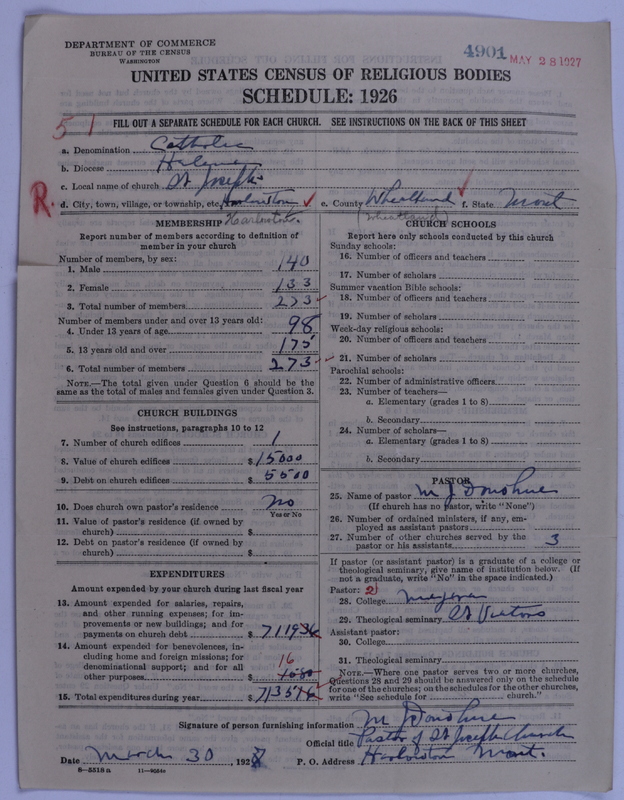 DEPARTMENT OF COMMERCE
BUREAU OF THE CENSUS
WASHINGTON
4901 MAY 28 1927
UNITED STATES CENSUS OF RELIGIOUS BODIES
SCHEDULE: 1926
51
FILL OUT A SEPARATE SCHEDULE FOR EACH CHURCH. SEE INSTRUCTIONS ON THE BACK OF THIS SHEET
a. Denomination Catholic
b. Diocese Helena
c. Local name of church St Joseph
R. d. City, town, village, or township, etc. Harlowton e. County Wheatland f. State Mont
Harlowton. (Wheatland)
MEMBERSHIP
Report number of members according to definition of
member in your church
Number of members, by sex:
1. Male 140
2. Female 133
3. Total number of members 273
Number of members under and over 13 years old:
4. Under 13 years of age 98
5. 13 years old and over 175
6. Total number of members 273
NOTE.—The total given under Question 6 should be
same as the total of males and females given under Question 3.
CHURCH BUILDINGS
See instructions, paragraphs 10 to 12
7. Number of church edifices 1
8. Value of church edifices $15000
9. Debt on church edifices $5500
10. Does church own pastor's residence no
Yes or No
11. Value of pastor's residence (if owned by
church) $
12. Debt on pastor's residence (if owned by
church) $
EXPENDITURES
Amount expended by your church during last fiscal year
13. Amount expended for salaries, repairs,
and other running expenses; for im-
provements or new buildings; and for
payments on church debt $
14. Amount expended for benevolences, in-
cluding home and foreign missions; for
denominational support; and for all 16
other purposes $
15. Total expenditures during year $
CHURCH SCHOOLS
Report here only schools conducted by this church
Sunday schools:
16. Number of officers and teachers
17. Number of scholars
Summer vacation Bible schools:
18. Number of officers and teachers
19. Number of scholars
Week-day religious schools:
20. Number of officers and teachers
21. Number of scholars
Parochial schools:
22. Number of administrative officers
23. Number of teachers—
a. Elementary (grades 1 to 8)
b. Secondary
24. Number of scholars—
a. Elementary (grades 1 to 8)
b. Secondary
PASTOR
25. Name of pastor M J Donohue
(If church has no pastor, write "None")
26. Number of ordained ministers, if any, em-
ployed as assistant pastors
27. Number of other churches served by the
pastor or his assistants 3
If pastor (or assistant pastor) is a graduate of a college or
theological seminary, give name of institution below. (If
not a graduate, write "No" in the space indicated.)
Pastor: 2
28. College
29. Theological seminary St Victors
Assistant pastor:
30. College
31. Theological seminary
NOTE.—Where one pastor serves two or more churches,
Questions 28 and 29 should be answered only on the schedule
for one of the churches; on the schedules for the other churches,
write "See schedule for church."
Signature of person furnishing information M J Donohue
Official title Pastor of St Joseph Church
Date March 30, 1927 P. O. Address Harlowton Mont.
8—5518a 11—9554